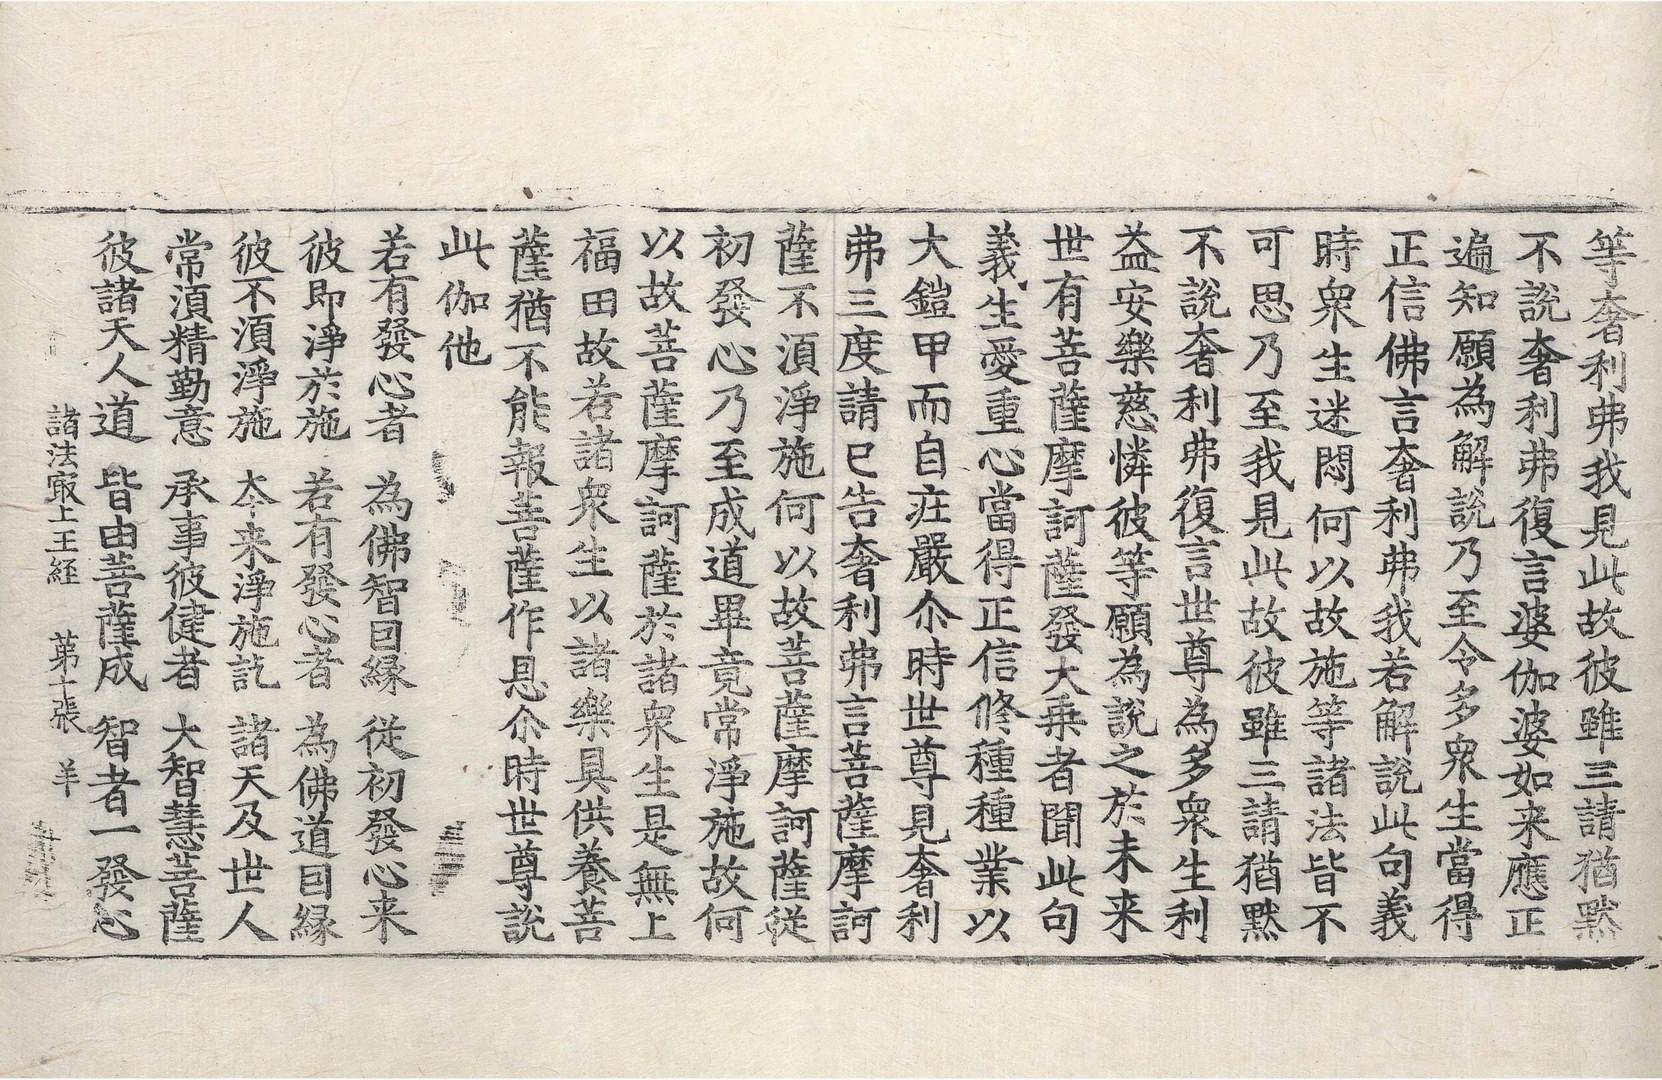 等奢利弗我見此故彼雖三請猶黙
不說奢利弗復言婆伽婆如来應正
遍知願為解說乃至令多衆生當得
正信佛言奢利弗我若解說此句義
時衆生迷悶何以故施等諸法皆不
可思乃至我見此故彼雖三請猶黙
不說奢利弗復言世尊為多衆生利
益安樂慈憐彼等願為說之於未来
世有菩薩摩訶薩發大乗者聞此句
義生愛重心當得正信修種種業以
大鎧甲而自庄嚴尒時世尊見奢利
弗三度請已告奢利弗言菩薩摩訶
薩不湏淨施何以故菩薩摩訶薩従
初發心乃至成道畢竟常淨施故何
以故菩薩摩訶薩於諸衆生是無上
福田故若諸衆生以諸樂具供養菩
薩猶不能報菩薩作恩尒時世尊說
此伽他
若有發心者　為佛智囙縁　従初發心来
彼即淨於施　若有發心者　為佛道囙縁
彼不湏淨施　夲来淨施訖　諸天及世人
常湏精勤意　承事彼健者　大智慧菩薩
彼諸天人道　皆由菩薩成　智者一發心
諸法㝡上王経　苐十張　羊